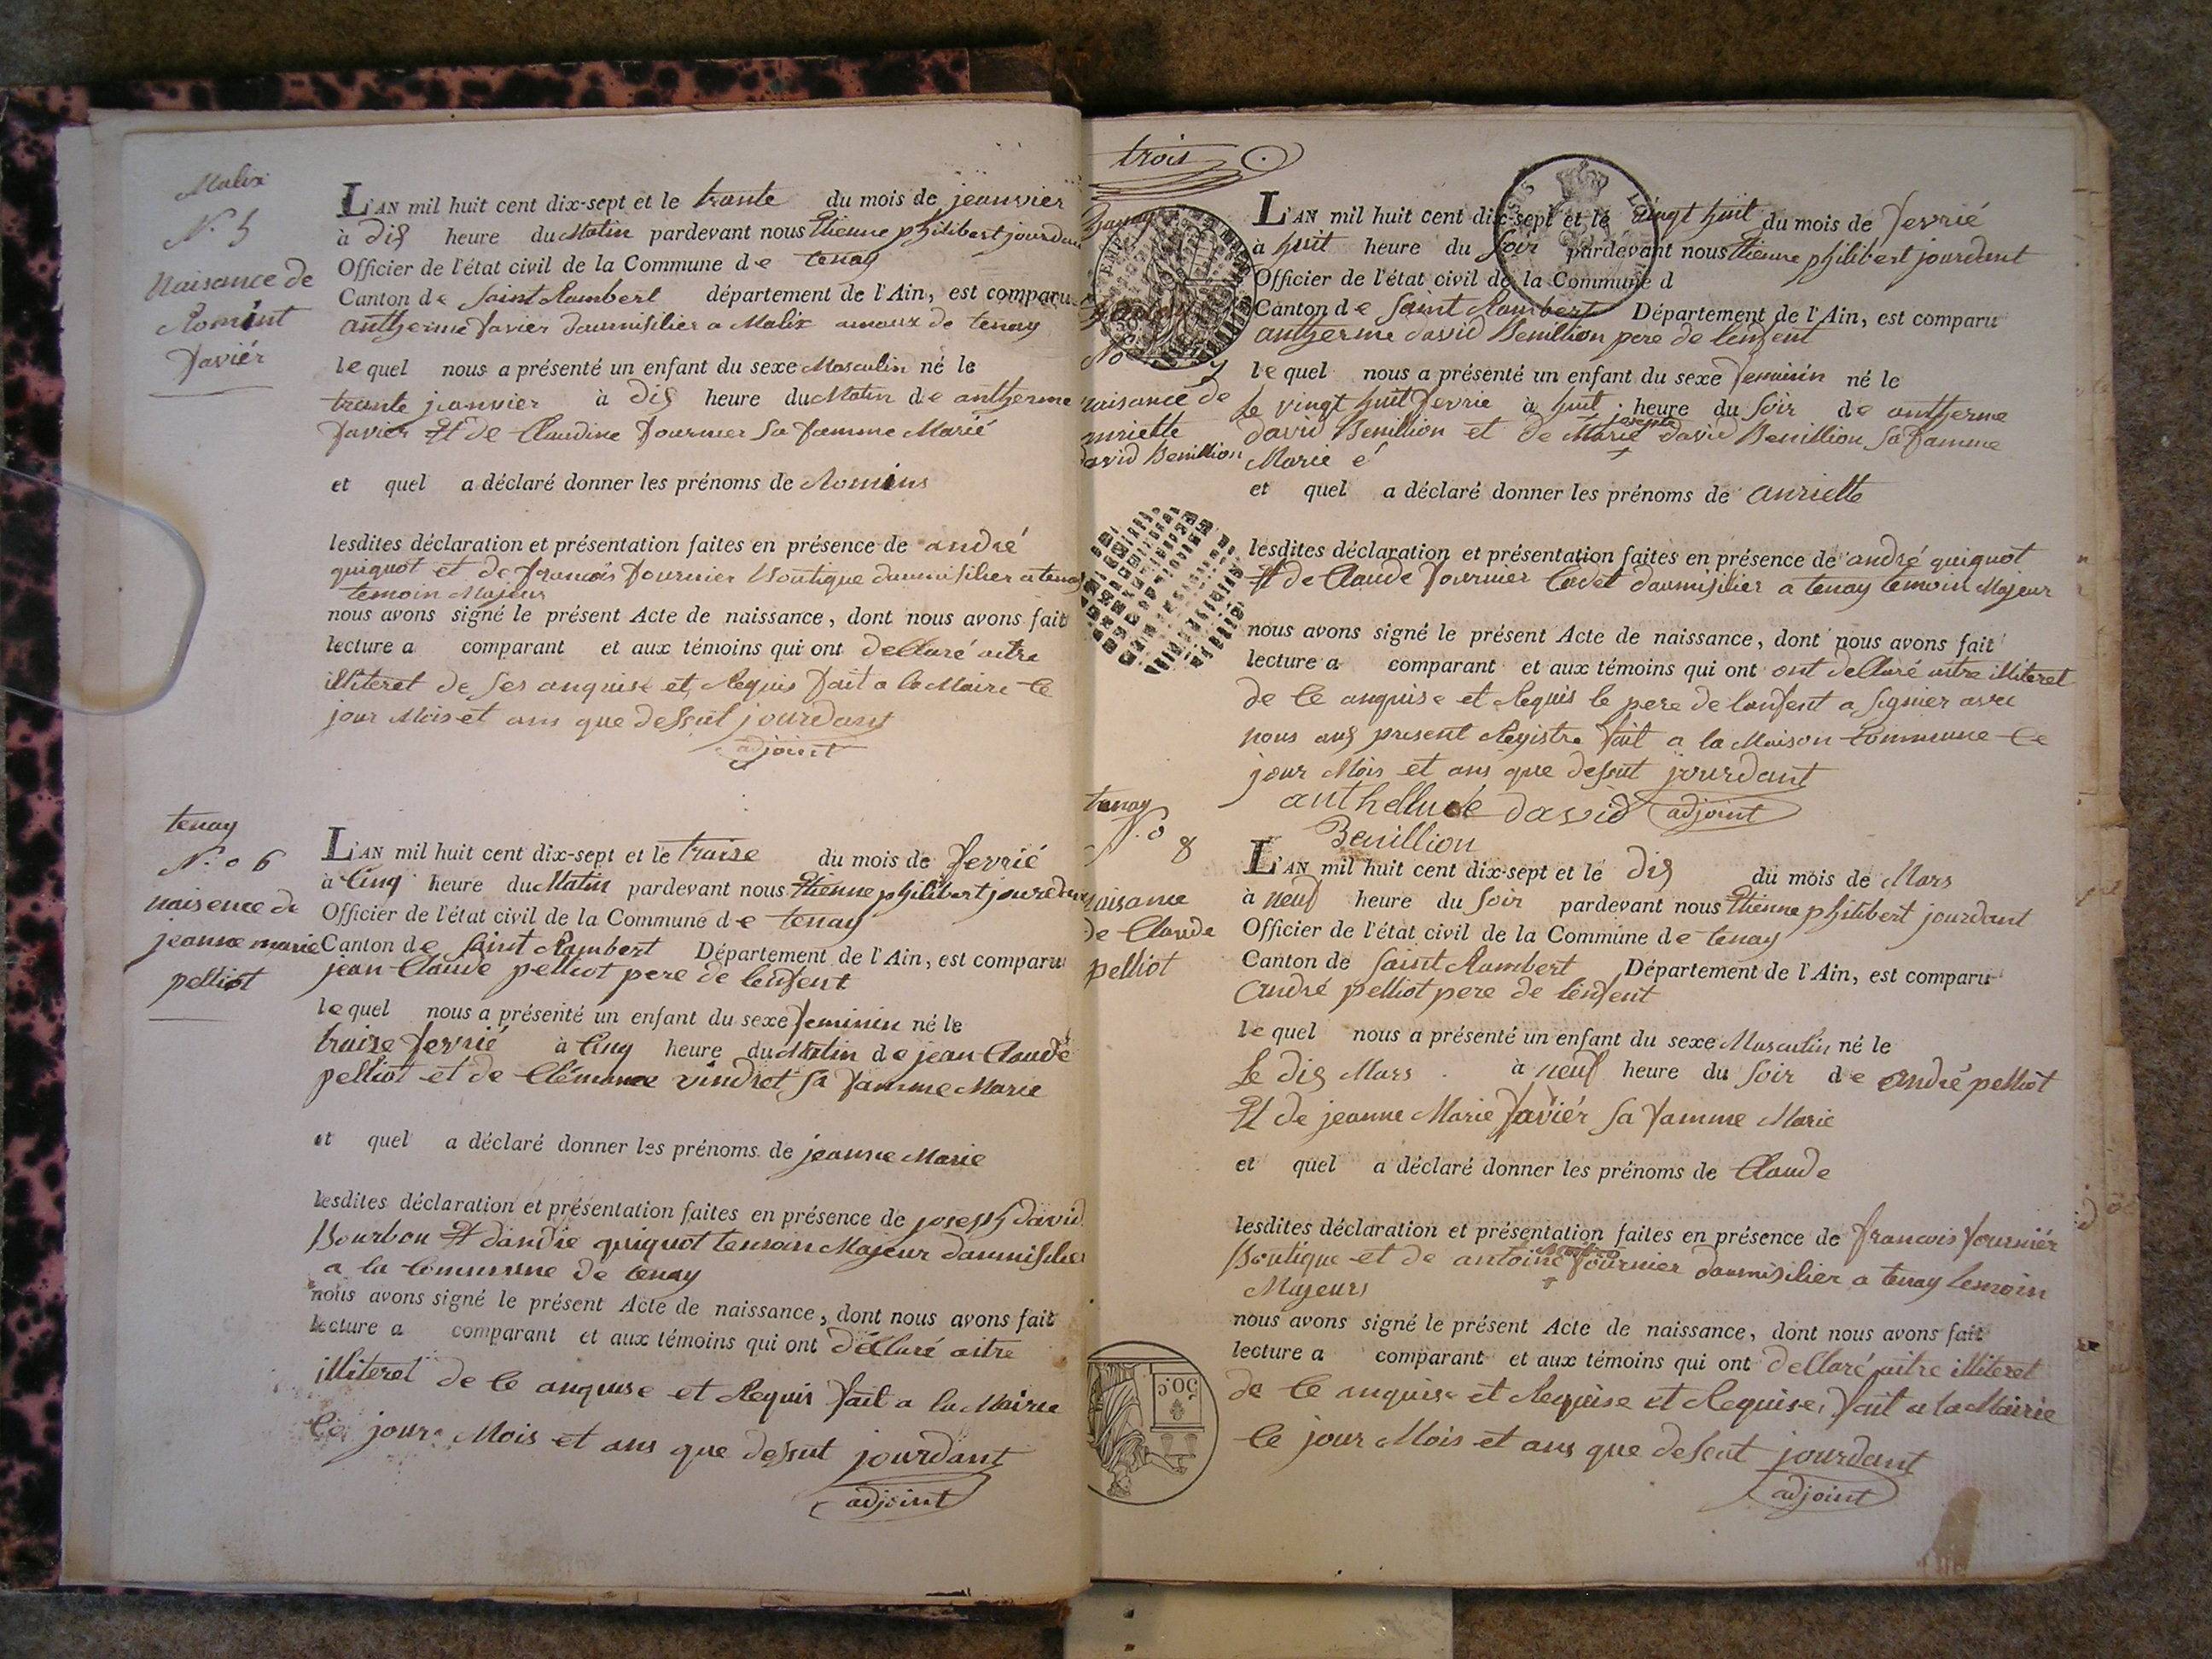 Malix
N.° 5
Naisance de
Romint
Favier
L'AN mil huit cent dix-sept et le trante du mois de jeanvier
à dis heure du Matin pardevant nous Etienne philibert jourdan
Officier de l'état civil de la Commune de tenay
Canton de Saint Rambert département de l'Ain, est comparu
antherme favier daumisilier a Malix amoux de tenay
lequel nous a présenté un enfant du sexe Masculin né le
trante jeanvier à dis heure du Matin de antherme
favier Et de Claudine fournier Sa famme Marié
et quel a déclaré donner les prénoms de Romins
lesdites déclaration et présentation faites en présence de andré
quiquot et de francois fournier Boutique daumisilier a tenay
temoin Majeur
nous avons signé le présent Acte de naissance, dont nous avons fait
lecture a comparant et aux témoins qui ont declaré aitre
illiteret de Ses anquise et Requis fait a la Maire Ce
jour Mois et ans que dessut jourdant
adjoint
tenay
N.° 6
naisence de
jeanne marie
pelliot
L'AN mil huit cent dix-sept et le traise du mois de fevrié
à Cinq heure du Matin pardevant nous Etienne philibert jourdan
Officier de l'état civil de la Commune de tenay
Canton de Saint Rambert Département de l'Ain, est comparu
jean Claude pelliot pere de lenfent
lequel nous a présenté un enfant du sexe feminin né le
traise fevrié à Cinq heure du Matin de jean Claude
pelliot et de Clémance vindret Sa famme Marie
et quel a déclaré donner les prénoms de jeanne Marie
lesdites déclaration et présentation faites en présence de joseph david
Bourbon Et dandré quiquot temoin Majeur daumisilier
a la Commune de tenay
nous avons signé le présent Acte de naissance, dont nous avons fait
lecture a comparant et aux témoins qui ont déclaré aitre
illiteret de Ce anquise et Requis fait a la Mairie
Ce jour Mois et ans que dessut jourdant
adjoint
trois
tenay
N.° 7
naisance de
anriette
david Benillion
L'AN mil huit cent dix-sept et le vingt huit du mois de fevrié
à huit heure du Soir pardevant nous Etienne philibert jourdant
Officier de l'état civil de la Commune d
Canton de Saint Rambert Département de l'Ain, est comparu
antherme david Benillion pere de lenfent
lequel nous a présenté un enfant du sexe feminin né le
Le vingt huit fevrie à huit heure du Soir de antherme
david Benillion et de Marie josepte david Benillion Sa famme
Marie é
et quel a déclaré donner les prénoms de anriette
lesdites déclaration et présentation faites en présence de andré quiquot
Et de Claude fournier Cadet daumisilier a tenay temoin Majeur
nous avons signé le présent Acte de naissance, dont nous avons fait
lecture a comparant et aux témoins qui ont ont declaré aitre illiteret
de Ce anquise et Requis le pere de lanfent a Signier avec
nous aus present Registre fait a la Maison Commune Ce
jour Mois et ans que dessut jourdant
adjoint
david
Benillion
tenay
N.° 8
naisance
de Claude
pelliot
L'AN mil huit cent dix-sept et le dis du mois de Mars
à neuf heure du Soir pardevant nous Etienne philibert jourdant
Officier de l'état civil de la Commune de tenay
Canton de Saint Rambert Département de l'Ain, est comparu
andré pelliot pere de lenfent
lequel nous a présenté un enfant du sexe Masculin né le
Le dis Mars à neuf heure du Soir de andré pelliot
Et de jeanne Marie favier Sa famme Marie
et quel a déclaré donner les prénoms de Claude
lesdites déclaration et présentation faites en présence de francois fournier
Boutique et de antoine fournier daumisilier a tenay temoin
Majeurs
nous avons signé le présent Acte de naissance, dont nous avons fait
lecture a comparant et aux témoins qui ont declaré aitre illiteret
de Ce anquise et Requise et Requise, fait a la Mairie
Ce jour Mois et ans que dessut jourdant
adjoint
50C